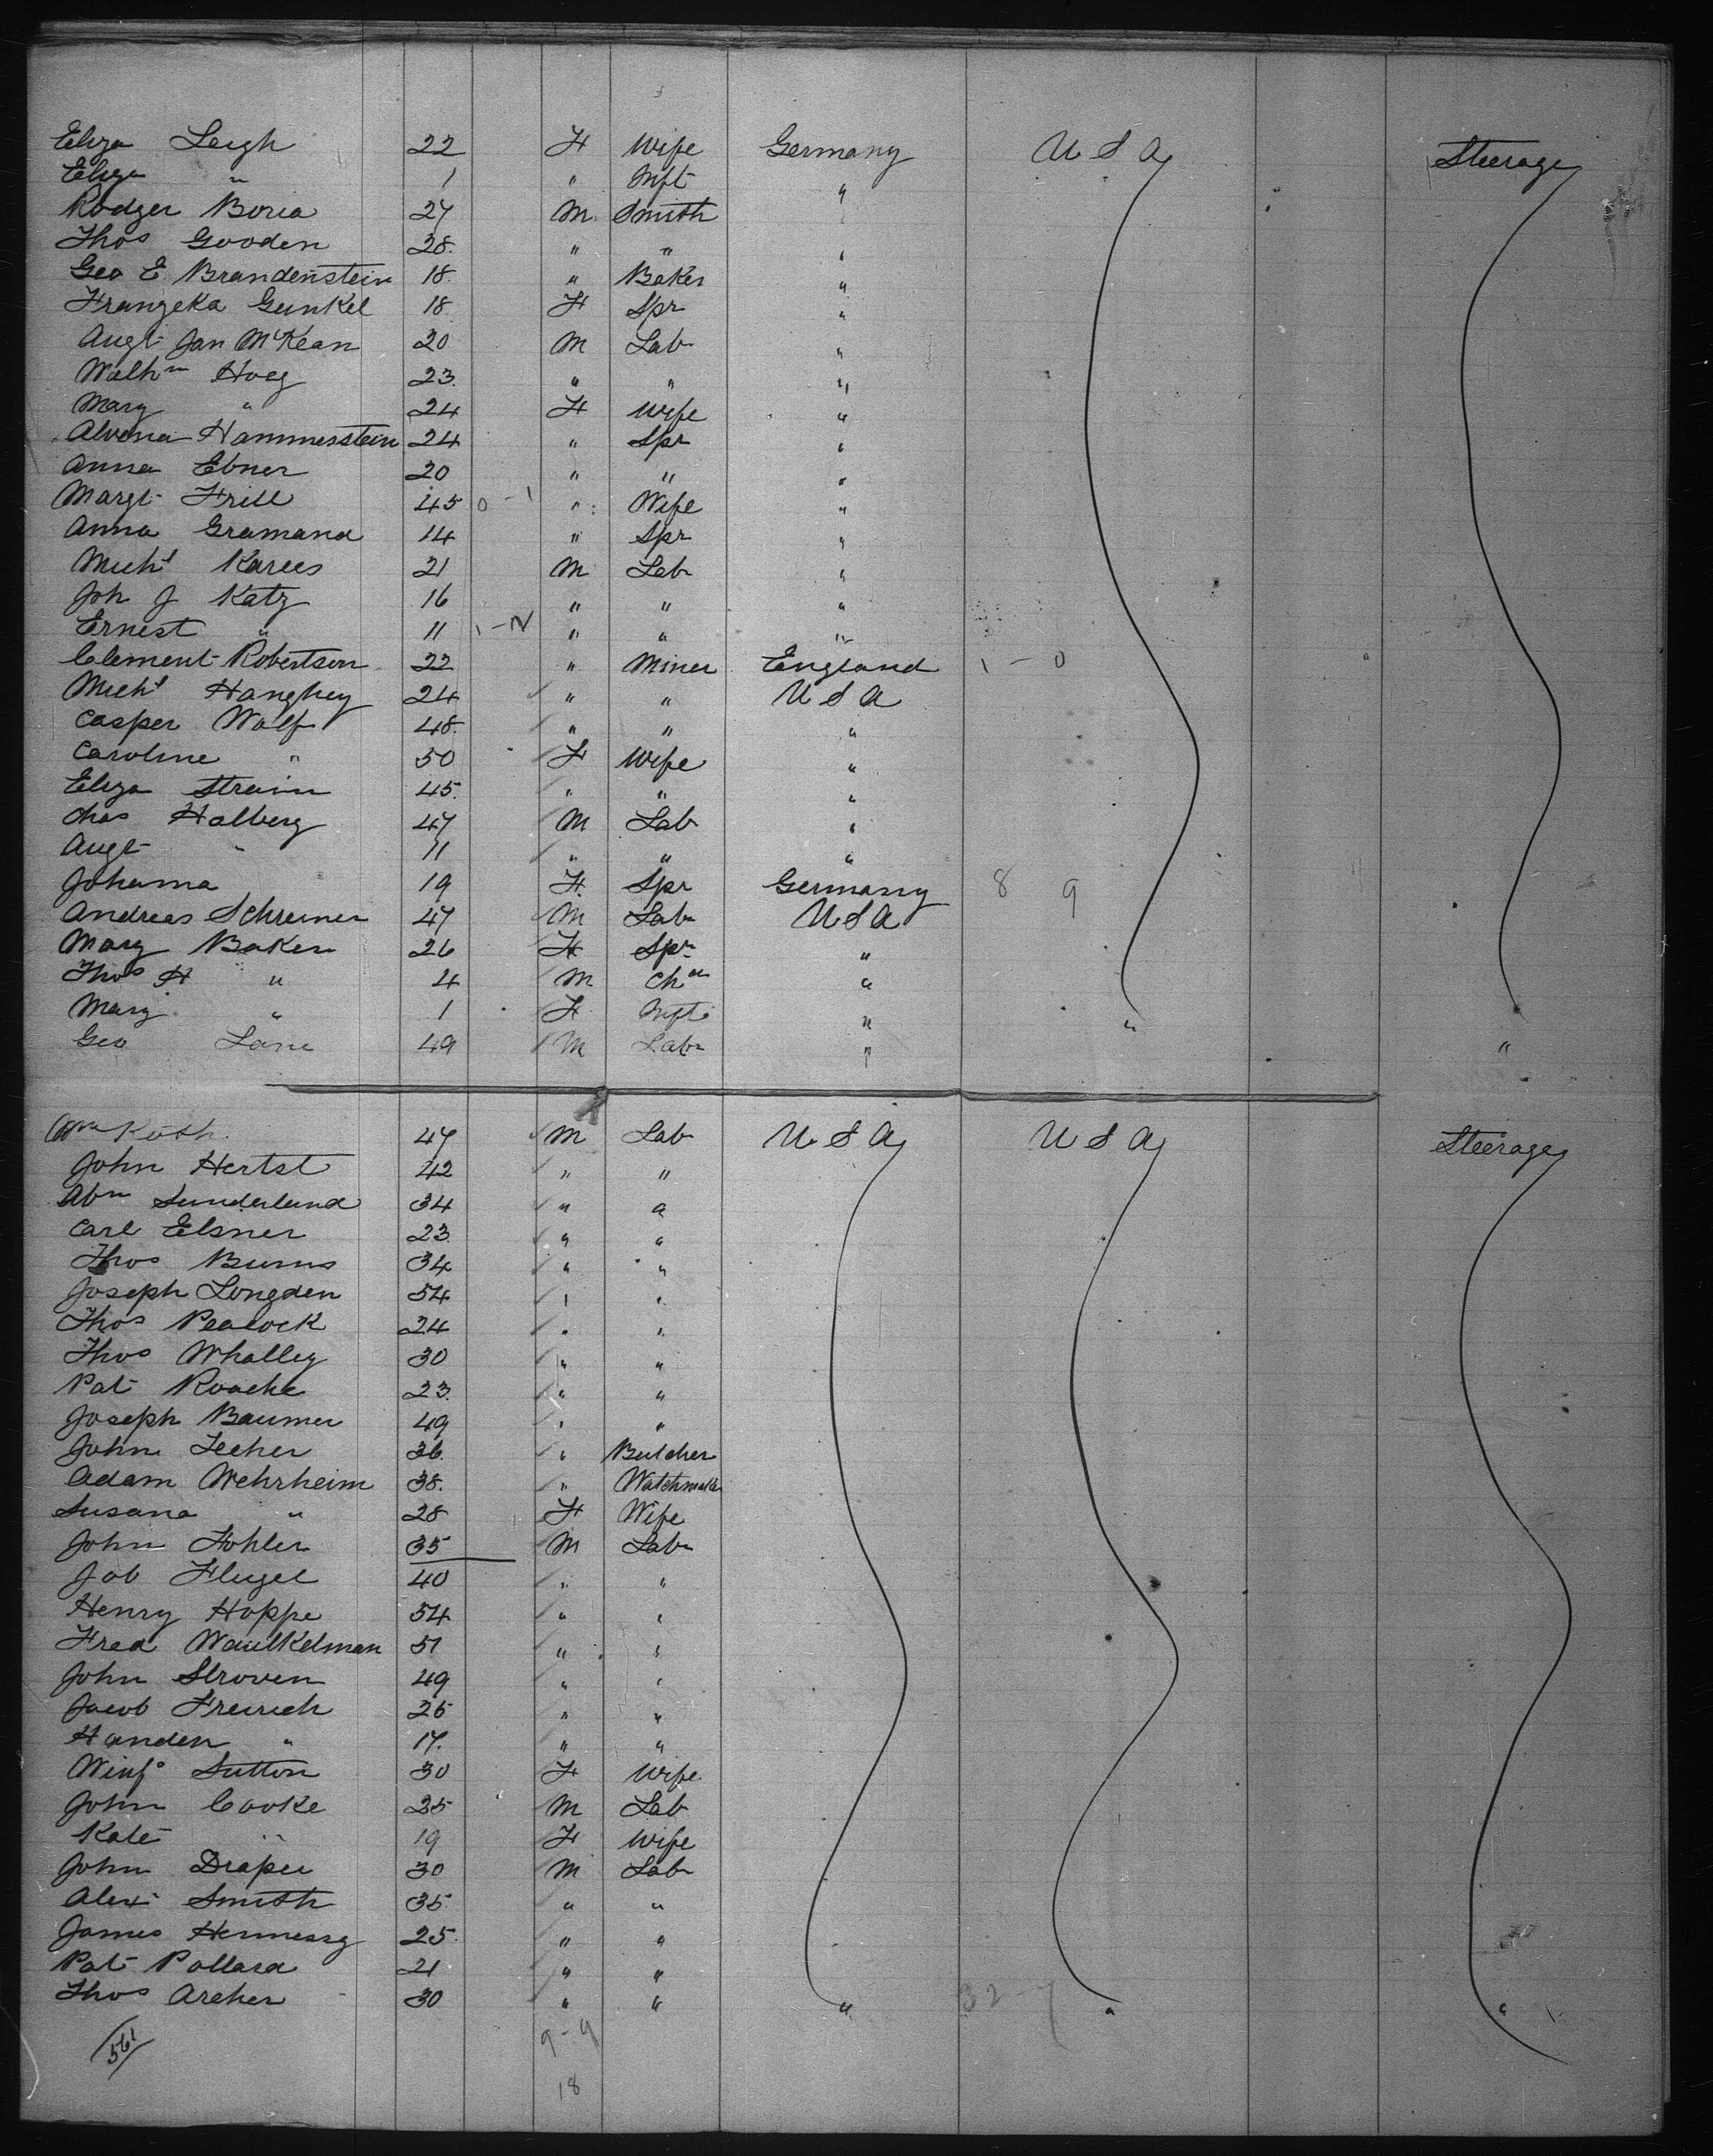 Eliza Leigh 22 F Wife Germany U S A Steerage
Eliza " 1 " Inft "
Rodger Boria 27 M Smith
Thos Gooden 28 " " "
Geo E Brandenstein 18 " Baker "
Franzeka Gunkel 18 F Spr "
Augt Jan McKean 20 M Lab "
Walhm Hoeg 23 " " "
Mary " 24 F Wife "
Alvena Hammerstein 24 " Spr "
Anna Ebner 20 " " "
Margt Frill 45 0 - 1 " Wife "
Anna Gramand 14 " Spr "
Michl Karees 21 M Lab "
Joh J Katz 16 " " "
Ernest " 11 1 - N " " "
Clement Robertson 22 " Miner England 1 - 0
Michl Hanghey 24 " " U S A
Casper Wolf 48 " " "
Caroline " 50 F Wife "
Eliza Strain 45 " " "
Chas Halberg 47 M Lab "
Augt " 11 " " "
Johanna 19 F Spr Germany 8 9
Andreas Schreiner 47 M Lab U S A
Mary Baker 26 F Spr "
Thos H " 4 M Chd "
Mary " 1 F Inft " "
Geo Lane 49 M Lab " "
Wm Roth 47 M Lab U S A U S A Steerage
John Hertst 42 " "
Abm Sunderland 34 " "
Carl Elsner 23 " "
Thos Burns 34 " "
Joseph Longden 54 " "
Thos Peacock 24 " "
Thos Whalley 30 " "
Pat Roache 23 " "
Joseph Baumer 49 " "
John Lecher 36 " Butcher
Adam Wehrheim 38 " Watchmake
Susana " 28 F Wife
John Fohler 35 M Lab
Jab Flugel 40 " "
Henry Hoppe 54 " "
Fred Waulkelman 51 " "
John Stroven 49 " "
Jacob Freirich 25 " "
Handen " 17 " "
Winfd Sutton 30 F Wife
John Cooke 25 M Lab
Kate " 19 F Wife
John Draper 30 M Lab
Alex Smith 35 " "
James Hennessy 25 " "
Pat Pollard 21 " "
Thos Archer 30 " " " 32 - 7 " "
561 9 - 9
18